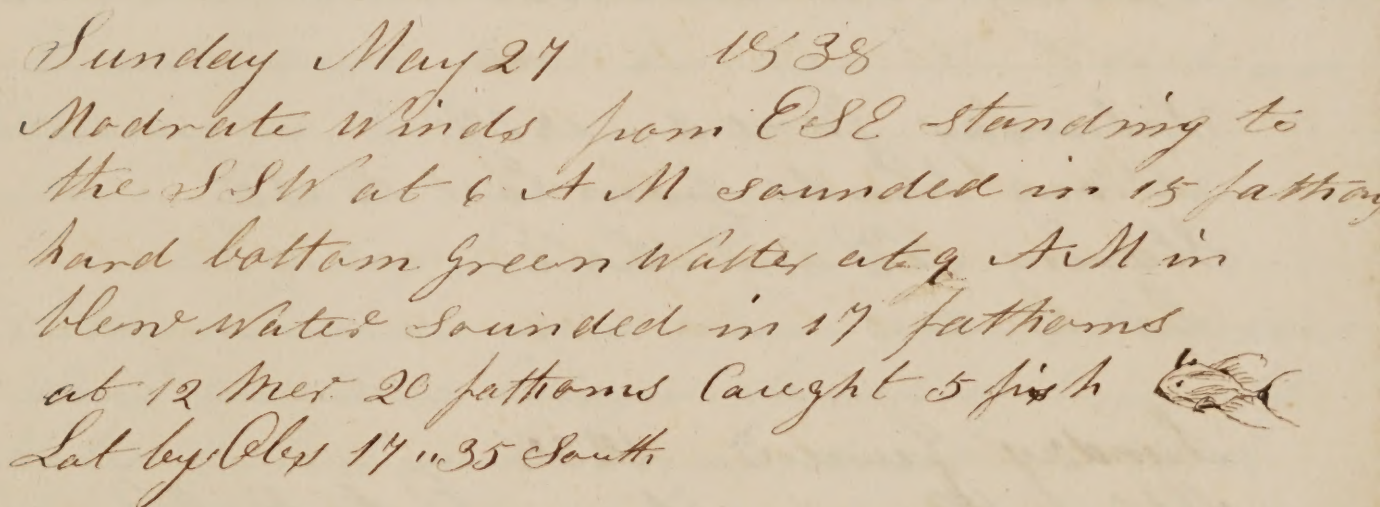 Sunday May 27 1838
Modrate Winds from ESE standing to
the SSW at 6 A M sounded in 15 fathoms
hard bottom green Watter at 9 A M in
blew Water sounded in 17 fathoms
at 12 Mer 20 fathoms Caught 5 fish
Lat by Obs 17 " 35 South